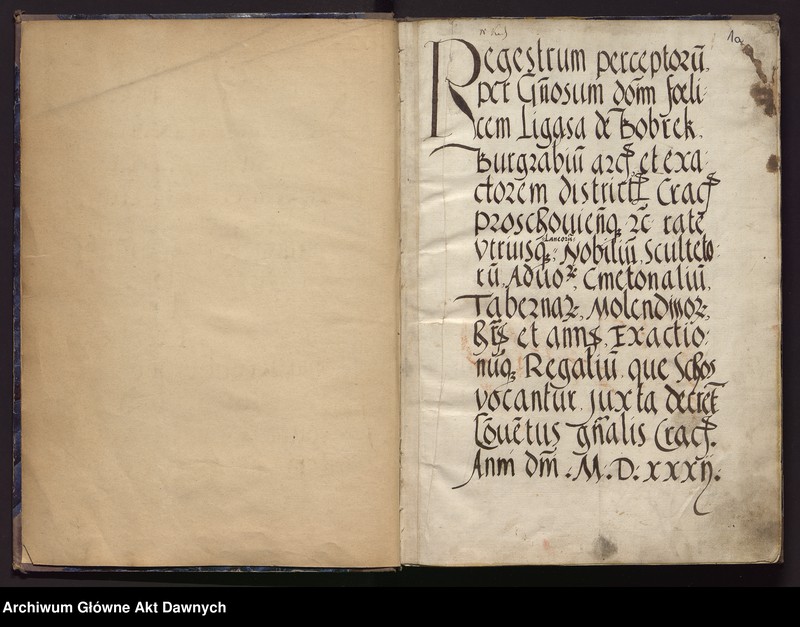 1a
Regestrum perceptorū,
per Gn̄osum dom̄ fœli⸗
cem Ligąsa de Bobrek.
Burgrabiū arcꝭ et exa⸗
ctorem districtꝰ Cracꝭ
proschouieñqꝫ ꝛc̄ ratē
vtriusqꝫ Lancorū Nobiliū, Sculteto⸗
rū, Aduoꝝ, Cmetonaliū,
Tabernaꝝ, Molendinoꝝ,
et annꝭ, Exactio⸗
nūqꝫ Regaliū que Schos
vocantur juxta decret̄
Cōuētus gn̄alis Cracꝭ.
Anni dm̄ .M.D.xxxij.
Archiwum Główne Akt Dawnych